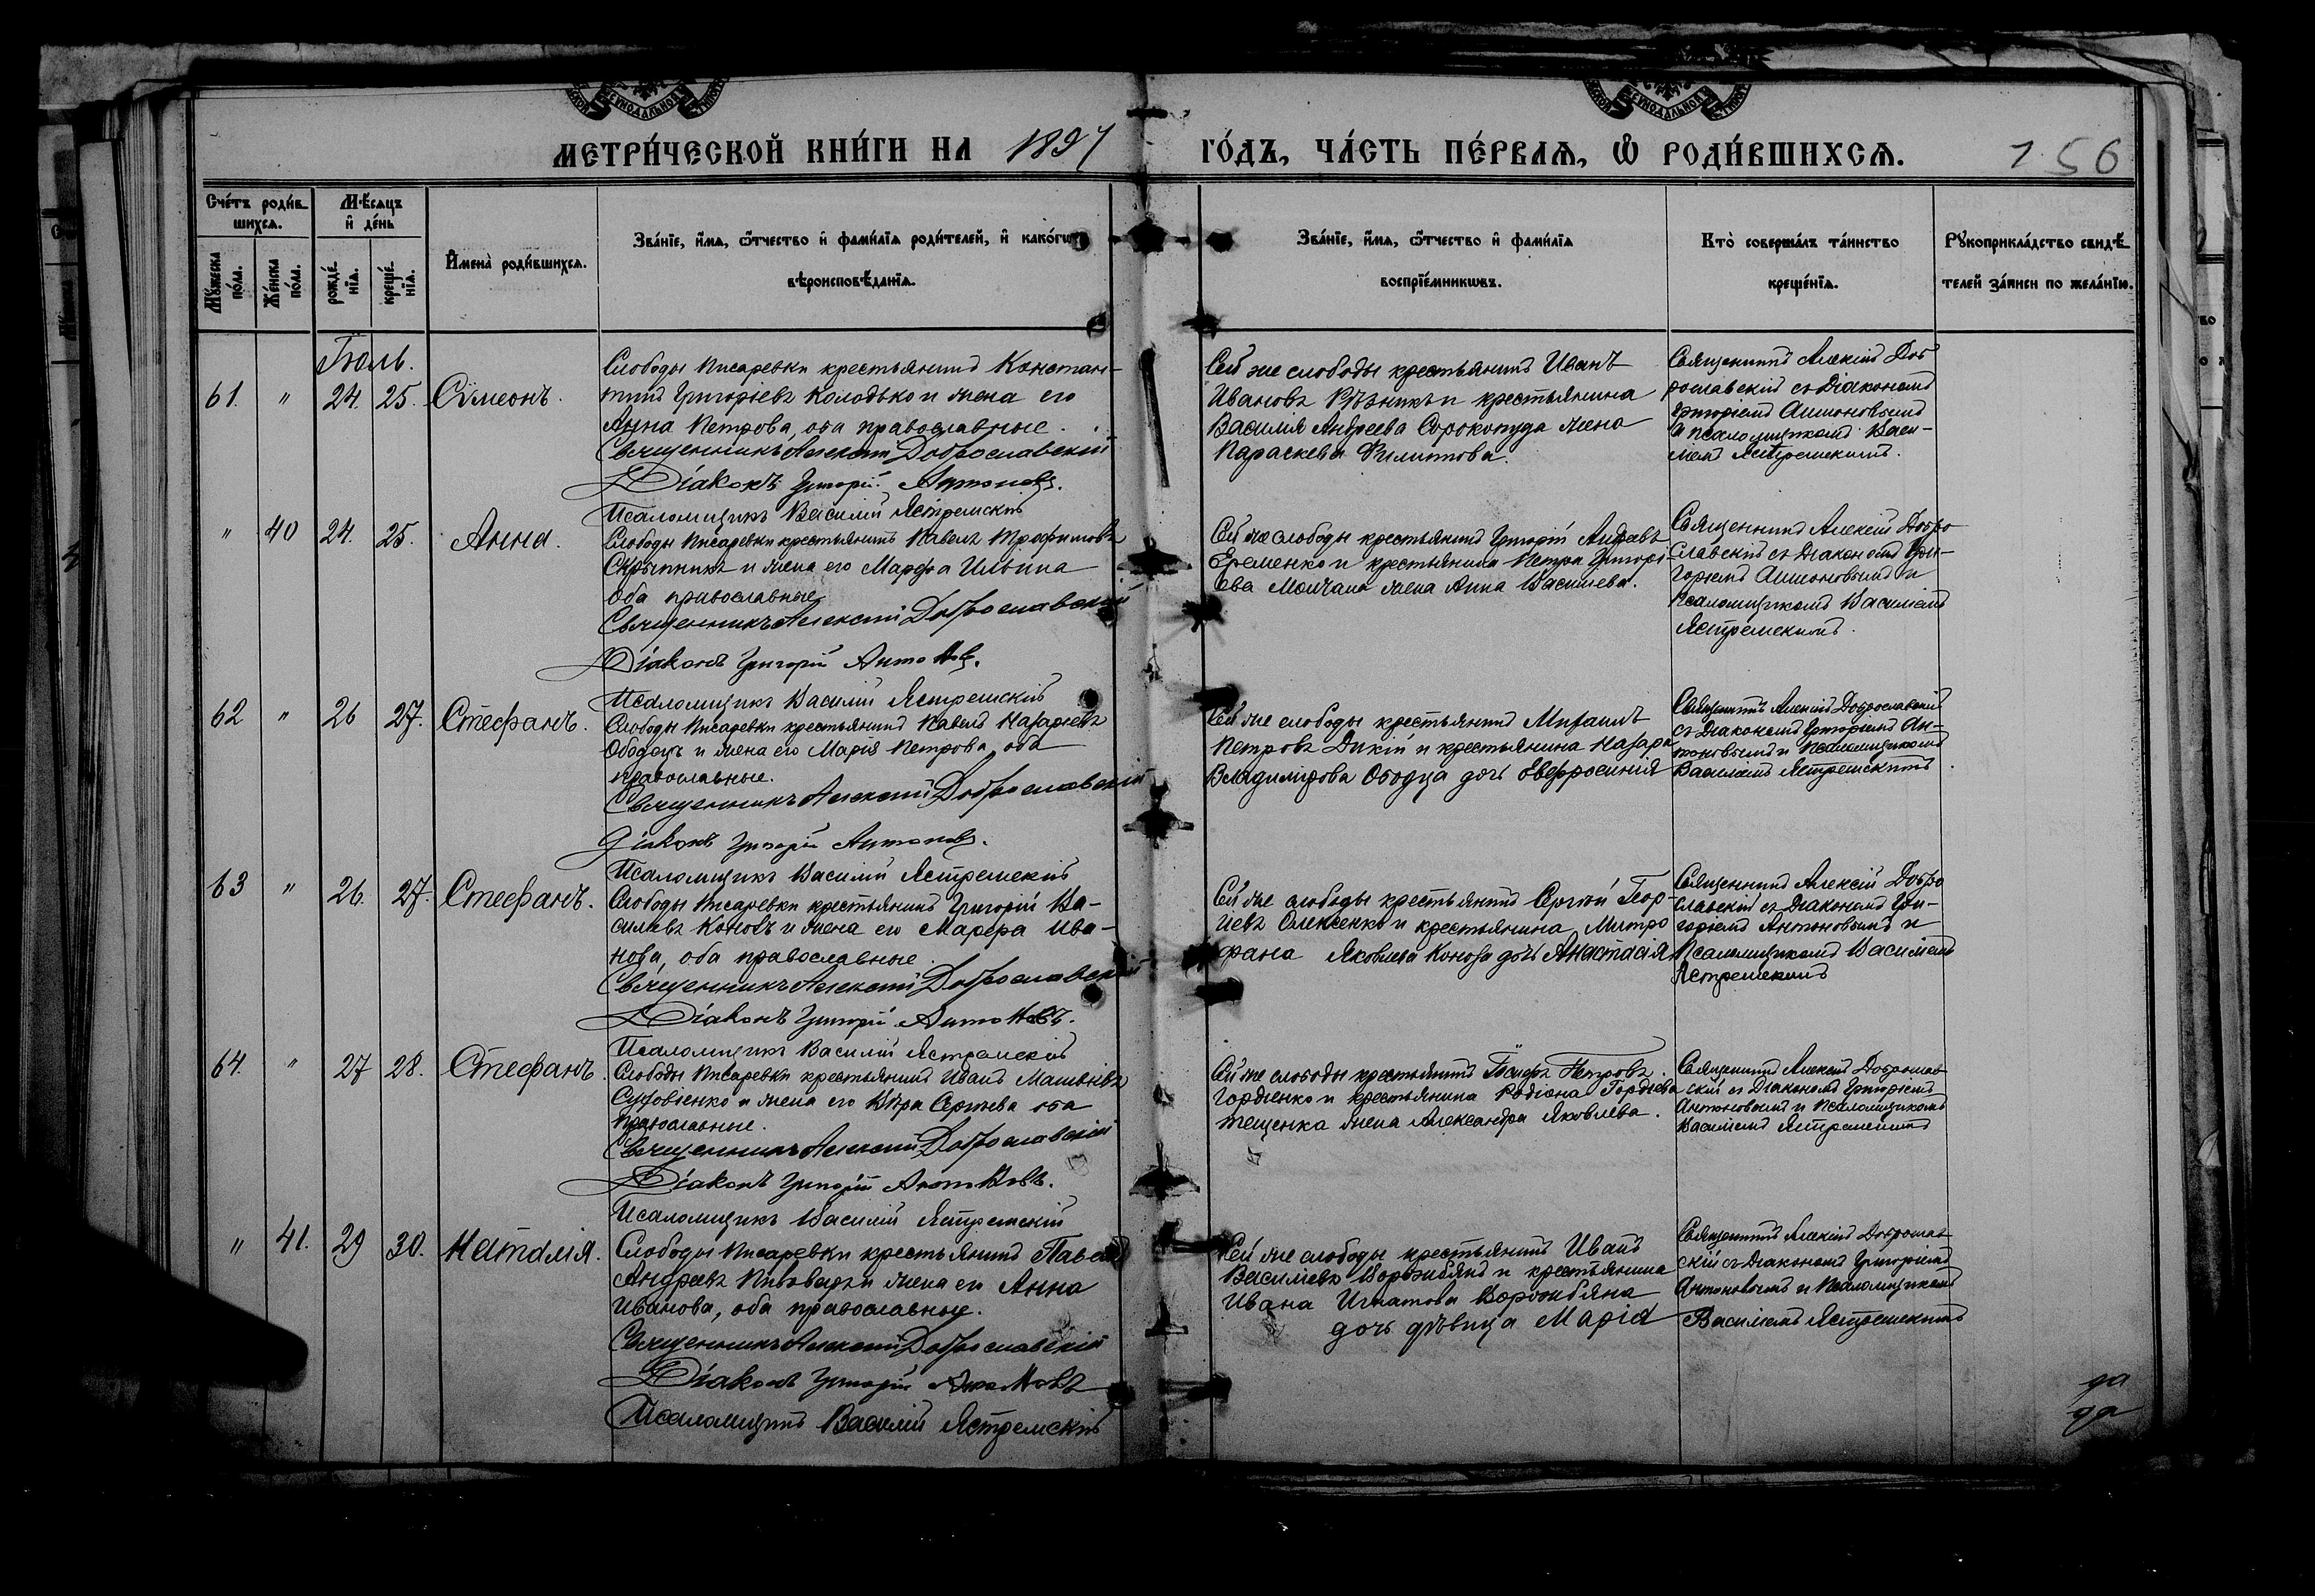 МЕТРИ́ЧЕСКОЙ КНИ́ГИ НА 1897 ГО́ДЪ, ЧА́СТЬ ПЕ́РВАѦ, Ѽ РОДИ́ВШИХСѦ.
156
Счетъ роди́в-
шихсѧ.
Мѣ́сѧцъ
и де́нь
Мꙋ́жеска
по́ла.
Же́нска
по́ла.
рожде́-
нїѧ.
креще́-
нїѧ.
Имена̀ роди́вшихсѧ.
Зва́нїе, и́мѧ, ѻ́тчество и фами́лїѧ роди́телей, и како́гѡ
вѣроисповѣ́данїѧ.
Зва́нїе, и́мѧ, ѻ́тчество и фами́лїѧ
воспрїе́мникѡвъ.
Кто̀ соверша́лъ та́инство
креще́нїѧ.
Рꙋкоприкла́дство свидѣ́-
телей за́писи по жела́нїю.
Іюль.
61. " 24. 25. Сѵмеонъ.
Слободы Писаревки крестьянинъ Констан-
тинъ Григоріевъ Колодько и жена его
Анна Петрова, оба православные.
Священникъ Алексій Доброславскій
Діаконъ Григорій Антоновъ.
Псаломщикъ Василій Ястремскій
Сей же слободы крестьянинъ Иванъ
Ивановъ Рѣзникъ и крестьянина
Василія Андреева Сорокопуда жена
Параскева Филиппова.
Священникъ Алексій Доб
рославскій съ Діакономъ
Григоріемъ Антоновымъ
и псаломщикомъ Васи-
ліемъ Ястремскимъ.
" 40 24. 25. Анна.
Слободы Писаревки крестьянинъ Павелъ Трофимовъ
Скрыпникъ и жена его Марфа Ильина
Оба православные
Священникъ Алексій Доброславскій
Діаконъ Григорій Антоновъ.
Псаломщикъ Василій Ястремскій
Сей же слободы крестьянинъ Григорій
Еременко и крестьянина Петра Григорі-
ева Молчана жена Анна Васильева.
Священникъ Алексій Добро
славскій съ Діакономъ Гри-
горіемъ Антоновымъ и
Псаломщикомъ Василіемъ
Ястремскимъ.
62 " 26 27. Стефанъ.
Слободы Писаревки крестьянинъ Павелъ Назаріевъ
Ободецъ и жена его Марія Петрова, оба
православные.
Священникъ Алексій Доброславскій
Діаконъ Григорій Антоновъ.
Псаломщикъ Василій Ястремскій
Сей же слободы крестьянинъ Михаилъ
Петровъ Дикій и крестьянина Назара
Владимірова Ободца дочь Евфросинія
Священникъ Алексій Доброславскій
съ Діакономъ Григоріемъ Ан-
тоновымъ и Псаломщикомъ
Василіемъ Ястремскимъ.
63 " 26. 27. Стефанъ.
Слободы Писаревки крестьянинъ Григорій Ва-
сильевъ Коновъ и жена его Марфа Ива-
нова, оба православные.
Священникъ Алексій Доброславскій
Діаконъ Григорій Антоновъ.
Псаломщикъ Василій Ястремскій
Сей же слободы крестьянинъ Сергѣй Геор-
гіевъ Олексенко и крестьянина Митро
фана Яковлева Конова дочь Анастасія
Священникъ Алексій Добро
славскій съ Діакономъ Гри-
горіемъ Антоновымъ и
Псаломщикомъ Василіемъ
Ястремскимъ
64. " 27 28. Стефанъ.
Слободы Писаревки крестьянинъ Иванъ Матвѣевъ
и жена его Вѣра Сергѣева оба
православные.
Священникъ Алексій Доброславскій
Діаконъ Григорій Антоновъ.
Псаломщикъ Василій Ястремскій
Сей же слободы крестьянинъ Петровъ
Гордіенко и крестьянина Родіона Гордѣева
жена Александра Яковлева.
Священникъ Алексій Доброслав-
скій съ Діакономъ Григоріемъ
Антоновымъ и Псаломщикомъ
Василіемъ Ястремскимъ
" 41. 29 30. Наталія.
Слободы Писаревки крестьянинъ Павелъ
Андреевъ Пивоваръ и жена его Анна
Иванова, оба православные.
Священникъ Алексій Доброславскій
Діаконъ Григорій Антоновъ
Псаломщикъ Василій Ястремскій
Сей же слободы крестьянинъ Иванъ
Васильевъ Ворожбянъ и крестьянина
Ивана Игнатова Ворожбяна
дочь дѣвица Марія
Священникъ Алексій Доброслав-
скій съ Діакономъ Григоріемъ
Антоновымъ и Псаломщикомъ
Василіемъ Ястремскимъ
да
да